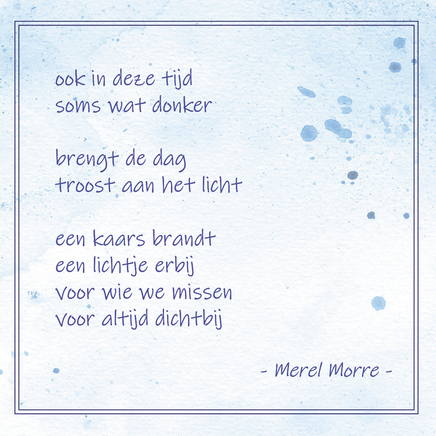 ook in deze tijd
soms wat donker
brengt de dag
troost aan het licht
een kaars brandt
een lichtje erbij
voor wie we missen
voor altijd dichtbij
- Merel Morre -